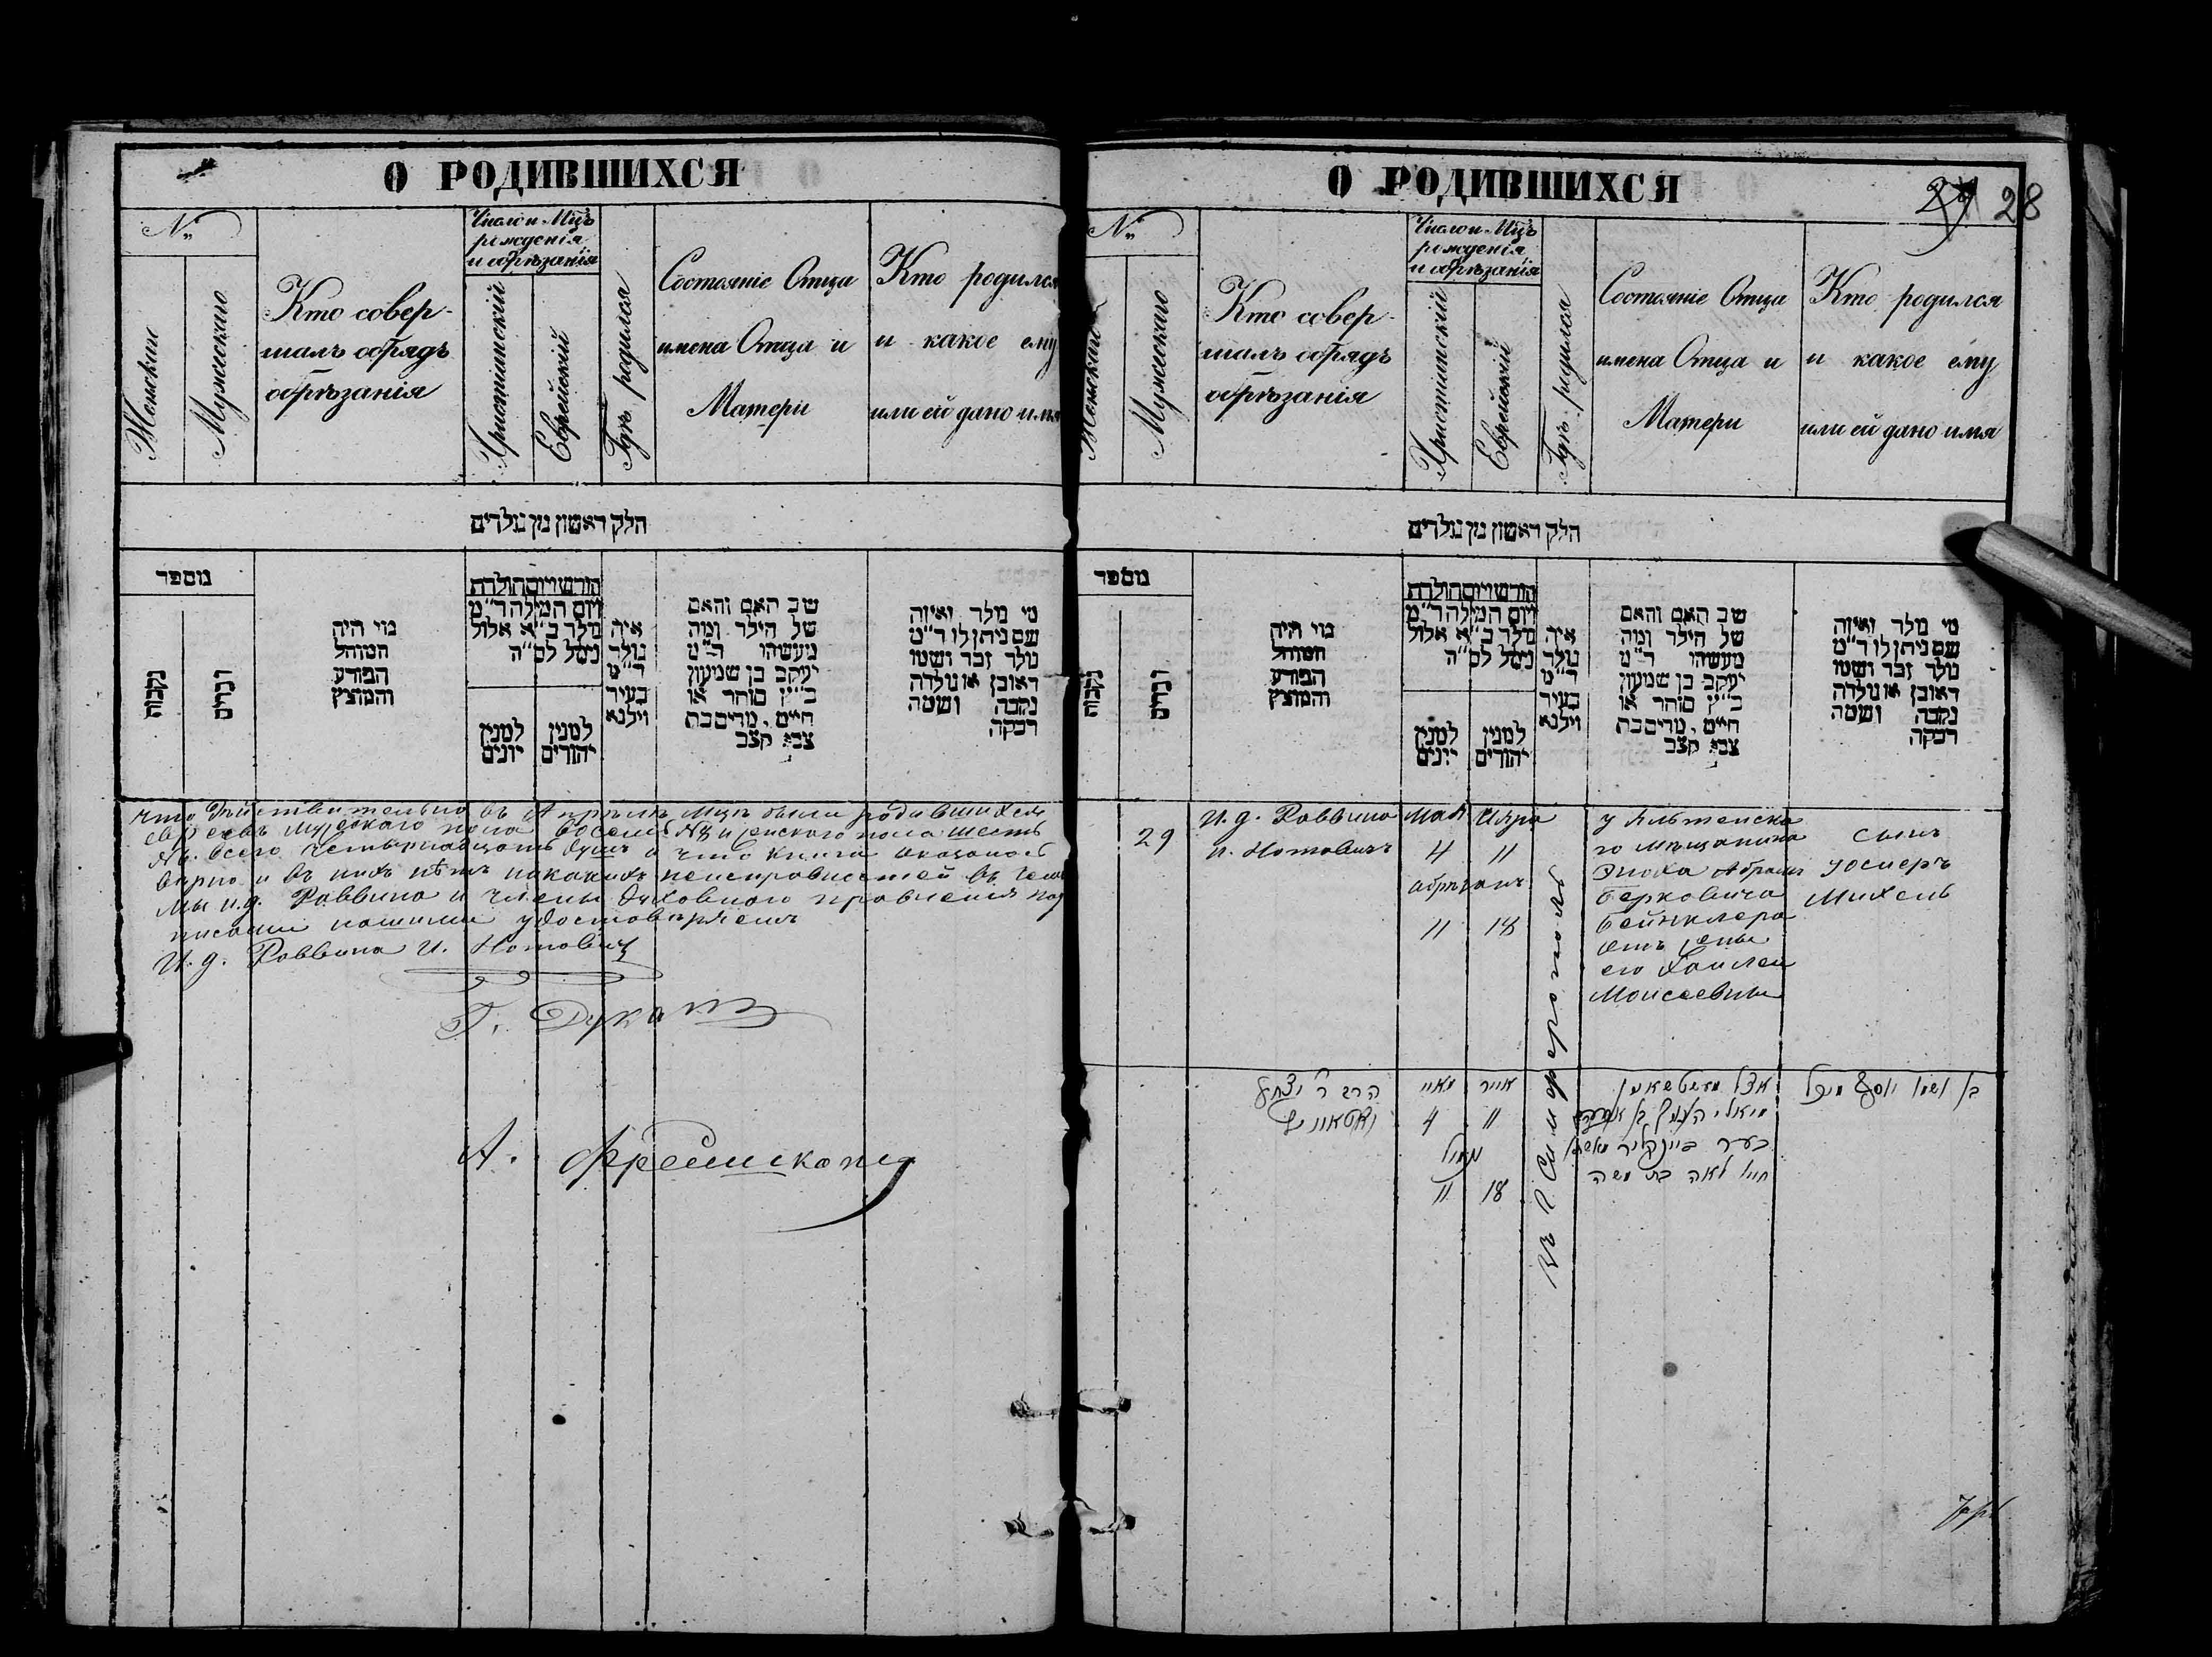 О РОДИВШИХСЯ
№
Женскаго
Мужескаго
Кто совер-
шалъ обрядъ
обрѣзанія
Число и Мцъ
рожденія
и обрѣзанія
Христіанскій
Еврейскій
Гдѣ родился
Состояніе Отца
имена Отца и
Матери
Кто родился
и какое ему
или ей дано имя
חלק ראשון מן נולדים
מספר
נקבות
זכרים
מי היה
המוהל
הפורע
והמוצץ
חודש ויום הולדת
ויום המילה ר״מ
נולד ב״א אלול
נימול לס״ה
למנין
יונים
למנין
יהודים
איה
נולד
ר״מ
בעיר
וילנא
שב האם והאם
של הילד ומה
מעשהו ר״מ
יעקב בן שמעון
כ״ץ סוחר או
חיים, מרים בת
צבי קצב
מי נולד ואיזה
שם ניתן לו ר״מ
נולד זכר ושמו
ראובן או נולדה
נקבה ושמה
רבקה
что дѣйствительно въ Апрѣлѣ мцѣ были родившихся
евреевъ мужскаго пола восемь и женскаго пола шесть
всего четырнадцать душъ и что книга оказалось
вѣрно и въ нихъ нѣтъ никакихъ неисправностей въ чемъ
мы и.д. Раввина и члены духовнаго правленія под
писами нашими удостовѣряемъ
И.д. Раввина И. Нотовичъ
А.
О РОДИВШИХСЯ
28
№
Женскаго
Мужескаго
Кто совер-
шалъ обрядъ
обрѣзанія
Число и Мцъ
рожденія
и обрѣзанія
Христіанскій
Еврейскій
Гдѣ родился
Состояніе Отца
имена Отца и
Матери
Кто родился
и какое ему
или ей дано имя
חלק ראשון מן נולדים
מספר
נקבות
זכרים
מי היה
המוהל
הפורע
והמוצץ
חודש ויום הולדת
ויום המילה ר״מ
נולד ב״א אלול
נימול לס״ה
למנין
יונים
למנין
יהודים
איה
נולד
ר״מ
בעיר
וילנא
שב האם והאם
של הילד ומה
מעשהו ר״מ
יעקב בן שמעון
כ״ץ סוחר או
חיים, מרים בת
צבי קצב
מי נולד ואיזה
שם ניתן לו ר״מ
נולד זכר ושמו
ראובן או נולדה
נקבה ושמה
רבקה
29
И.д. Раввина
И. Нотовичъ
Мая
4
обрѣзанъ
11
Іяра
11
18
въ Симферополѣ
у
го мѣщанина
Эноха Абрамъ
Берковича
Бейнклера
отъ жены
его Хаи Леи
Моисеевны
сынъ
Іосифъ
Михель
הרב ר׳ יצחק
נאטאוויץ
מאיי
4
נמול
11
אייר
11
18
אצל
בער ביינקליר
חיי לאה בת משה
בן ושמו יוסף מיכל